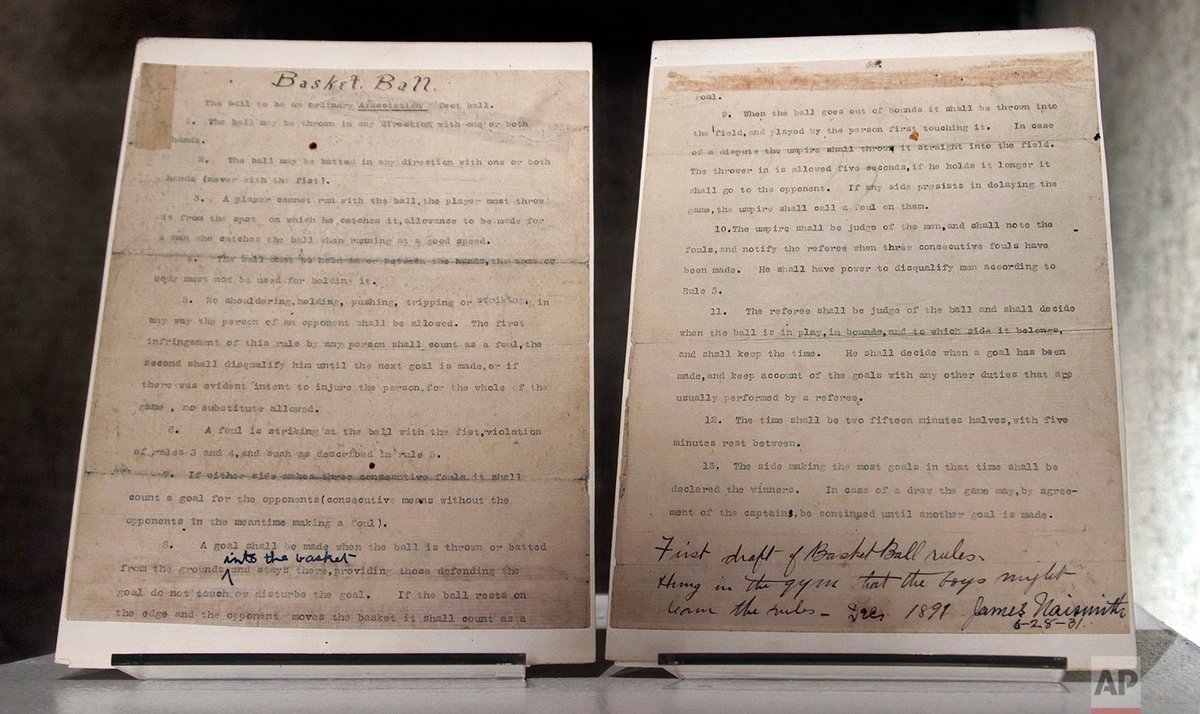 Basket Ball.
The ball to be an ordinary Association foot ball.
1. The ball may be thrown in any direction with one or both
hands.
2. The ball may be batted in any direction with one or both
hands (never with the fist).
3. A player cannot run with the ball, the player must throw
it from the spot on which he catches it, allowance to be made for
a man who catches the ball when running at a good speed.
4. The ball must be held in or between the hands, the arms or
body must not be used for holding it.
5. No shouldering, holding, pushing, tripping or striking, in
any way the person of an opponent shall be allowed. The first
infringement of this rule by any person shall count as a foul, the
second shall disqualify him until the next goal is made, or if
there was evident intent to injure the person, for the whole of the
game, no substitute allowed.
6. A foul is striking at the ball with the fist, violation
of rules 3 and 4, and such as described in rule 5.
7. If either side makes three consecutive fouls it shall
count a goal for the opponents (consecutive means without the
opponents in the meantime making a foul).
8. A goal shall be made when the ball is thrown or batted
into the basket
from the grounds and stays there, providing those defending the
goal do not touch or disturbe the goal. If the ball rests on
the edge and the opponent moves the basket it shall count as a
goal.
9. When the ball goes out of bounds it shall be thrown into
the field, and played by the person first touching it. In case
of a dispute the umpire shall throw it straight into the field.
The thrower in is allowed five seconds, if he holds it longer it
shall go to the opponent. If any side presists in delaying the
game, the umpire shall call a foul on them.
10. The umpire shall be judge of the men, and shall note the
fouls, and notify the referee when three consecutive fouls have
been made. He shall have power to disqualify men according to
Rule 5.
11. The referee shall be judge of the ball and shall decide
when the ball is in play, in bounds, and to which side it belongs,
and shall keep the time. He shall decide when a goal has been
made, and keep account of the goals with any other duties that are
usually performed by a referee.
12. The time shall be two fifteen minutes halves, with five
minutes rest between.
13. The side making the most goals in that time shall be
declared the winners. In case of a draw the game may, by agree-
ment of the captains, be continued until another goal is made.
First draft of Basket Ball rules.
Hung in the gym that the boys might
learn the rules - Dec. 1891 James Naismith
6-28-31.
AP